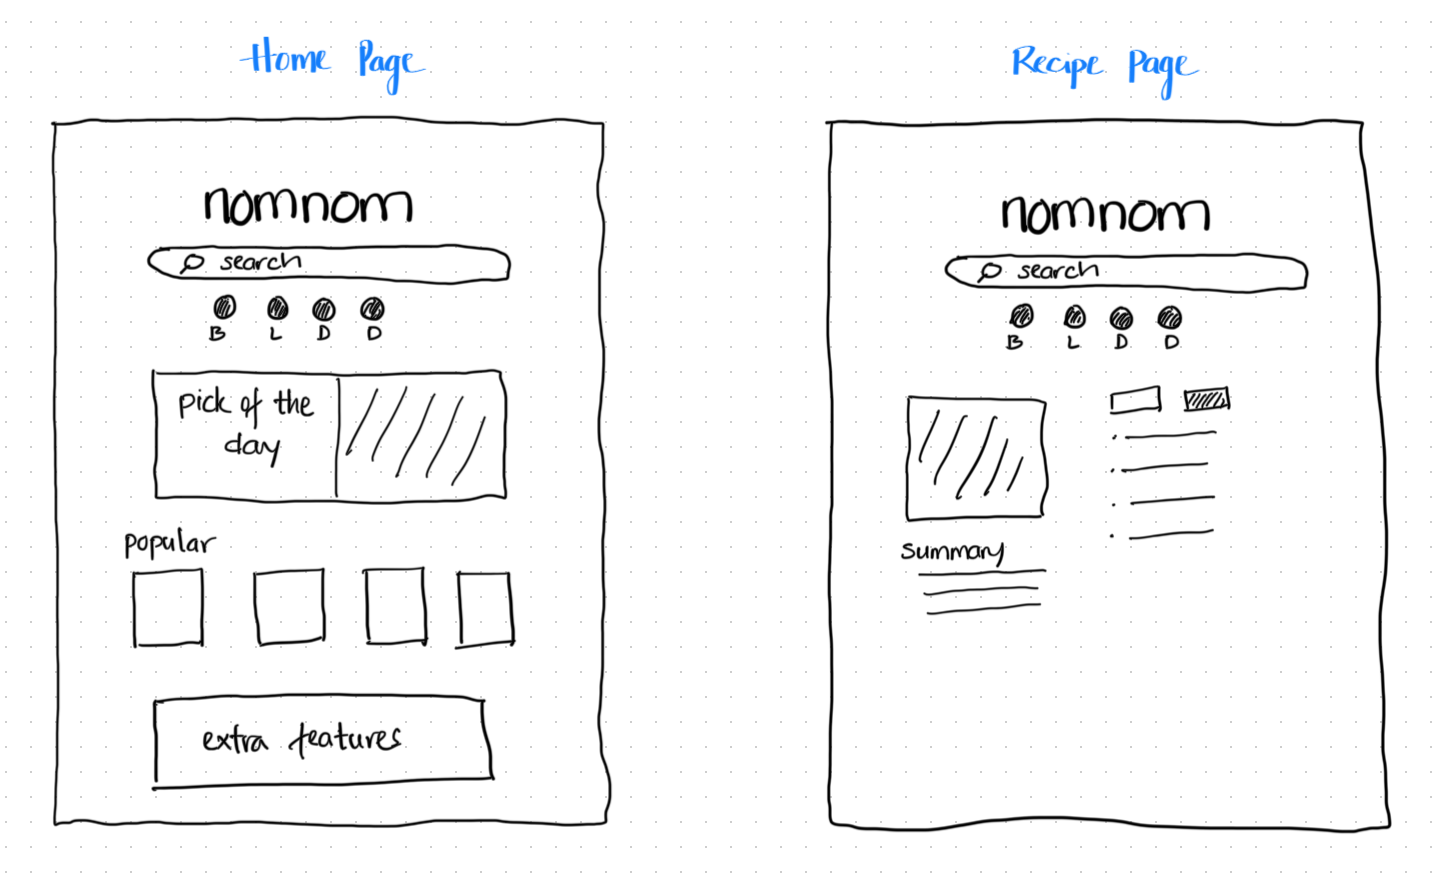 Home Page
nomnom
search
B L D D
pick of the
day
popular
extra features
Recipe Page
nomnom
search
B L D D
summary